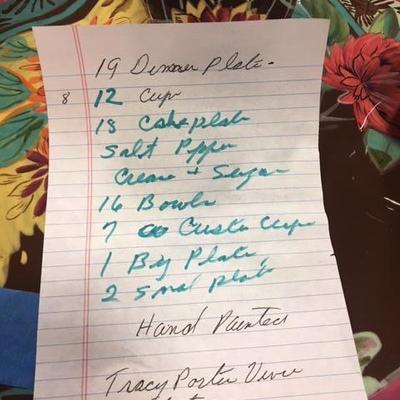 19 Dinner Plate
8 12 Cup
18 Cake plate
Salt Pepper
Cream + Sugar
16 Bowls
7 Custer Cups
1 Big Plate,
2 Small plate
Hand Painted
Tracy Porter